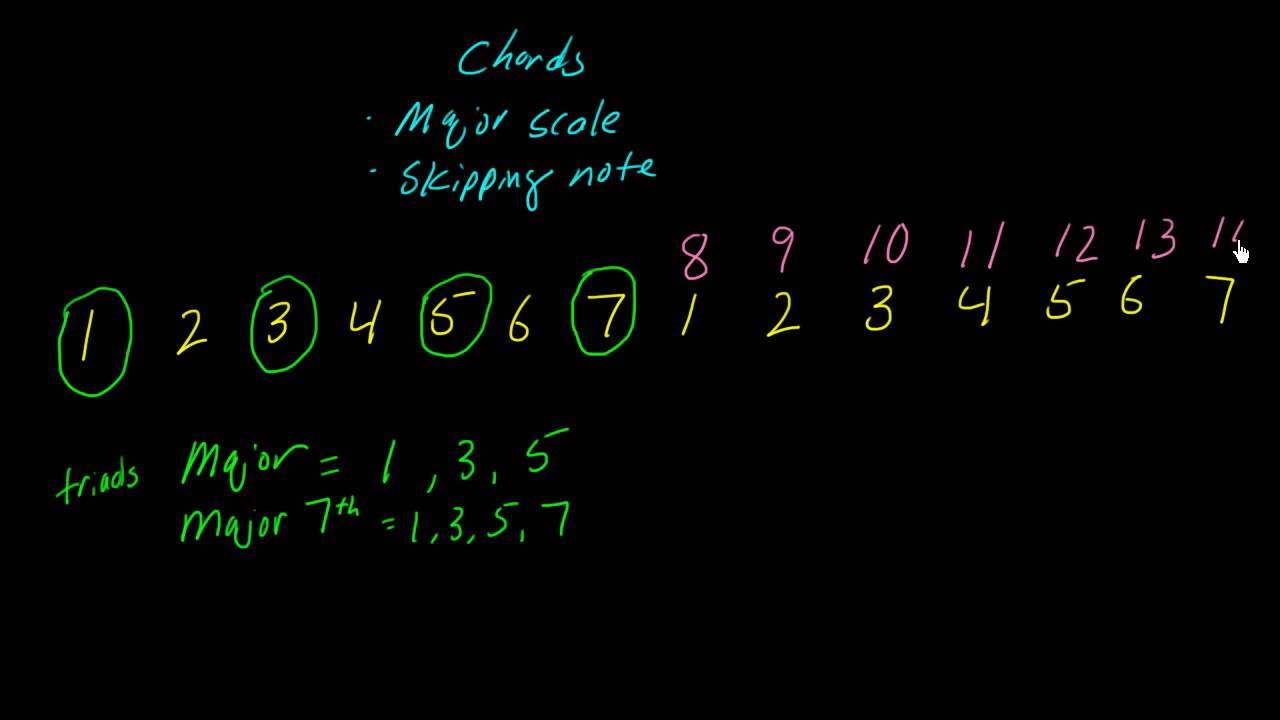 Chords
· Major scale
· Skipping note
8 9 10 11 12 13
1 2 3 4 5 6 7 1 2 3 4 5 6 7
triads Major = 1, 3, 5
Major 7th = 1, 3, 5, 7